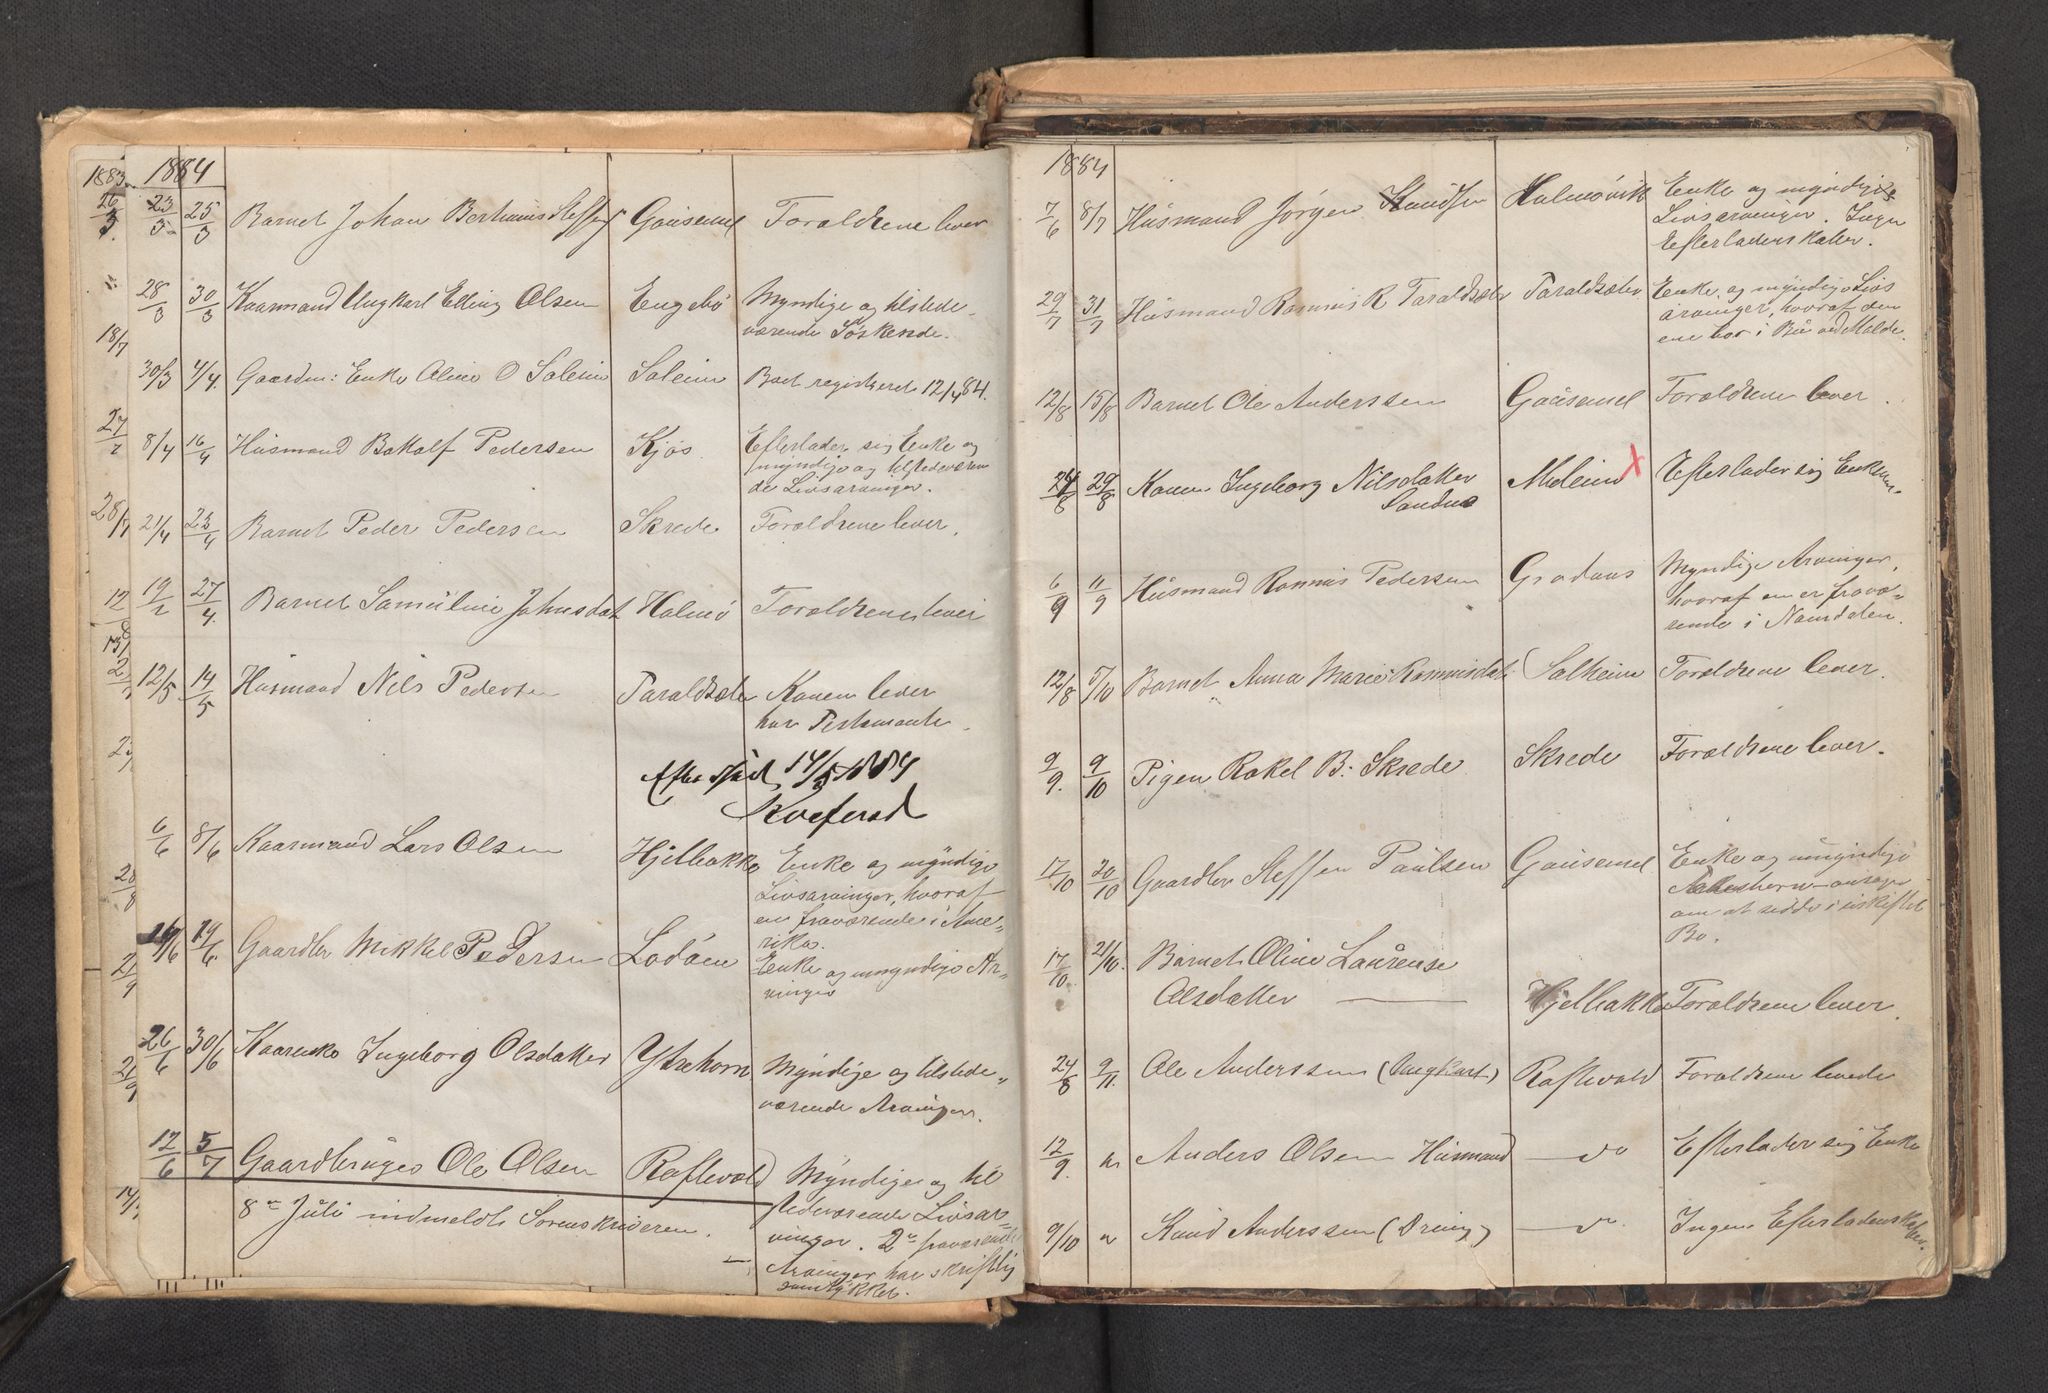 1883. 1884
26/3. 23/3 25/3 Barnet Johan Berthinus Steffens Gausemel Forældrene lever
28/3 30/3 Kaarmand Ungkarl Elling Olsen Engebø Myndige og tilstede-
værende Søskende.
18/7
30/3 4/4. Gaardm: Enke Oline O Soleim Soleim Boet registreret 12/4 84.
27/7 8/4 16/4 Husmand Botholf Pedersen Kjøs Efterlader sig Enke og
myndige og tilstedeværen
de Livsarvinger.
28/7 21/4 22/4 Barnet Peder Pedersen Skrede Forældrene lever.
12/ 19/2 27/4. Barnet Samuline Johnsdat Holmø Forældrene lever
12/5 14/5 Husmand Nils Pedersen Taraldsæter Konen lever
har Testamente.
Efterseet 14/5 1884
6/6 8/6 Kaarmand Lars Olsen Hjelbakke Enke og myndige
Livsarvinger, hvoraf
en fraværende i Ame-
rika.
14/6 19/6. Gaardbr Mikkel Pedersen Lodøen Enke og myndige Ar-
vinger
26/6 30/6 Kaarenke Ingeborg Olsdatter Ytrehorn Myndige og tilstede-
værende Arvinger.
12/6 5/7 Gaardbruger Ole Olsen Raftevold Myndige og til
stedeværende Livsar-
8de Juli indmeldt Sorenskriveren. vinger. 2de fraværende
Arvinger har skriftlig
samtykket.
1884
7/6 8/7 Husmand Jørgen Knudsen Holmøvik Enke og myndige
Livsarvinger. Ingen
Efterladenskaber.
29/7 31/7 Husmand Rasmus R Taraldsæter Taraldsæter Enke og myndige Livs
arvinger, hvoraf den
ene bor i Bu ved Molde.
12/8 15/8 Barnet Ole Anderssen Gausemel Forældrene lever.
24/8 29/8 Konen Ingeborg Nilsdatter Moleim X Efterlader sig Enkem.
Sandnæ
6/9 11/9 Husmand Rasmus Pedersen Grodaas Myndige Arvinger,
hvoraf en er fravæ-
rende i Namdalen.
12/8 5/10 Barnet Anna Marie Rasmusdat Solheim Forældrene lever.
9/9. 9/10 Pigen Rakel B. Skrede Skrede Forældrene lever.
17/10 20/10 Gaardbr Steffen Paulsen Gausemel Enke og myndige
om at sidde i uskiftet
Bo.
17/10 21/10. Barnet Oline Laurense
Olsdatter — Hjelbakke Forældrene lever.
24/8 9/11. Ole Anderssen (Ungkarl) Raftevold Forældrene levede
12/9. " Anders Olsen Husmand — do Efterlader sig Enke
9/10 " Knud Anderssen (Dreng) — do Ingen Efterladenskaber.